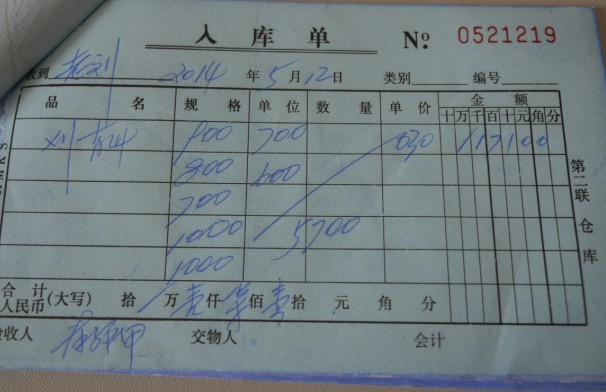 入库单 № 0521219
收到 老刘 2014 年 5 月 12 日 类别 编号
品名 规格 单位 数量 单价 金额
十万千百十元角分
900 700 030 117100
800 600
700
1000 5700
1000
合计人民币(大写) 拾 万 壹 仟 柒 佰 壹 拾 元 角 分
验收人 交物人 会计
第二联 仓库